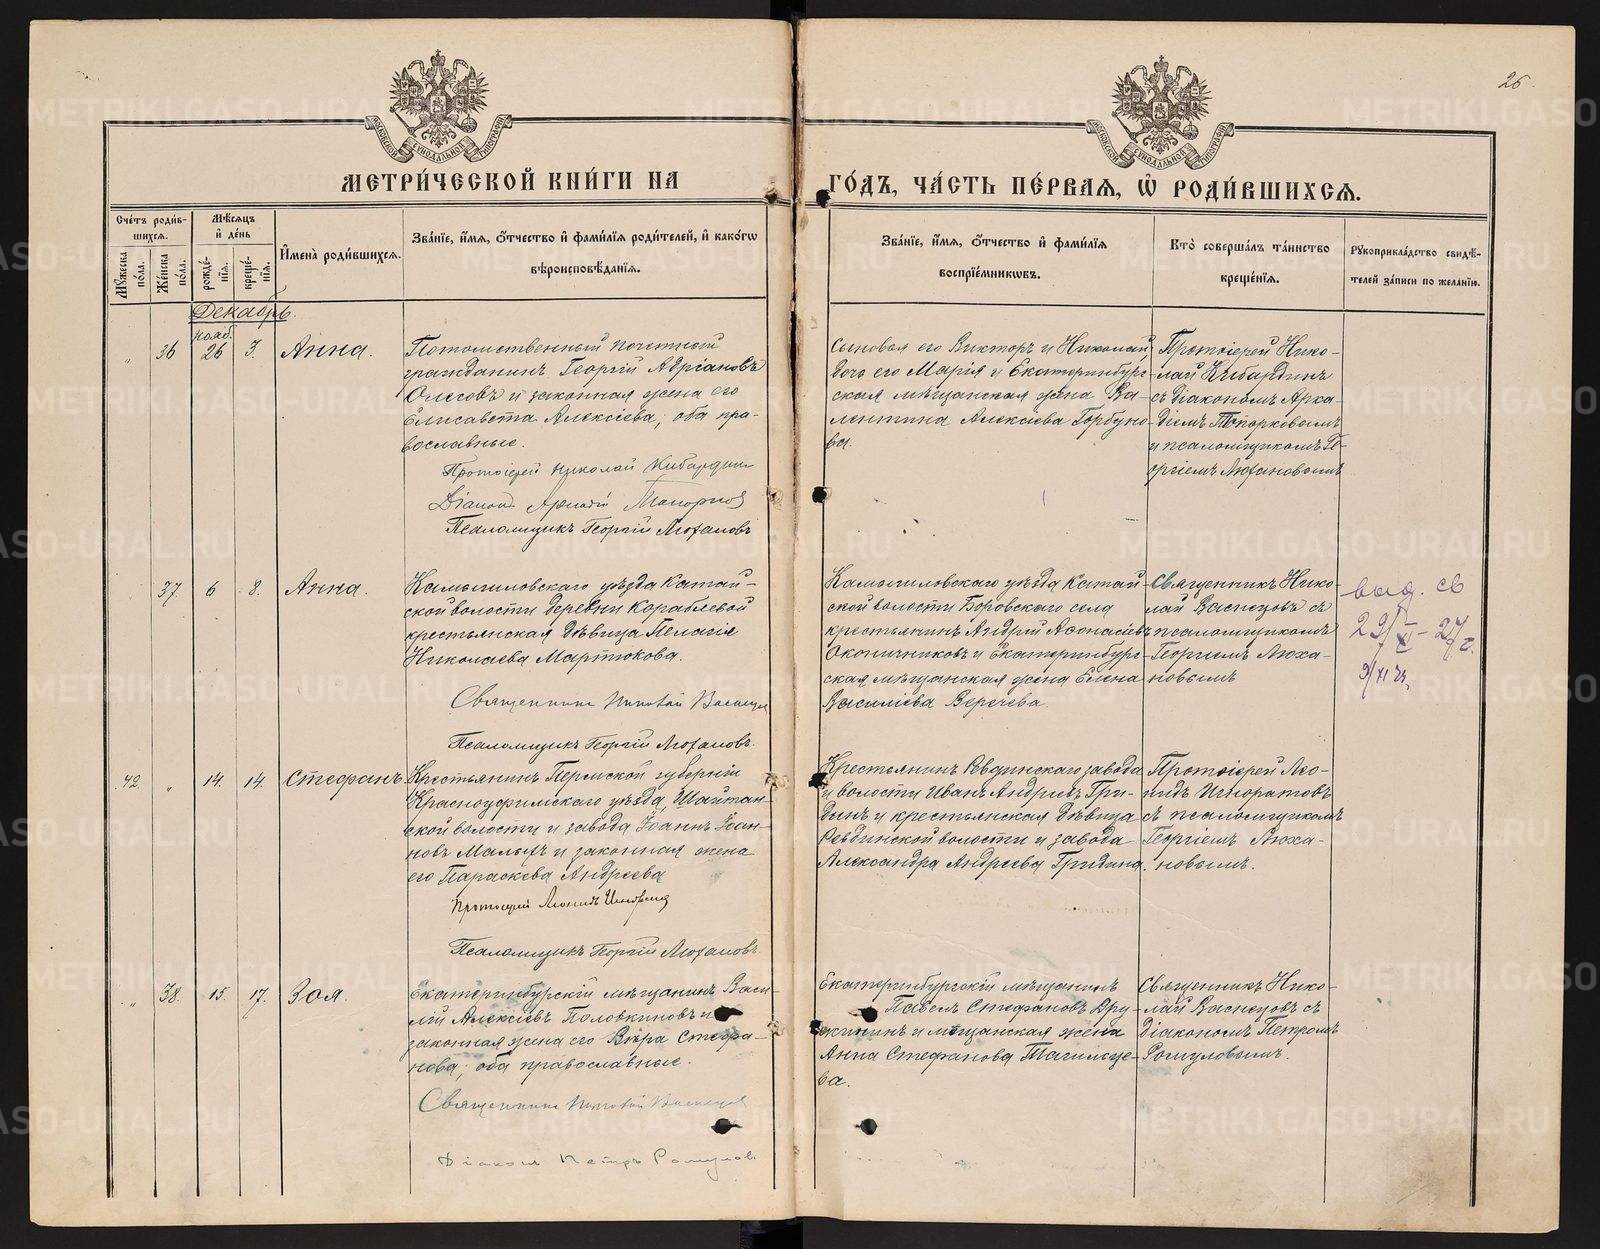 26.
МЕТРИ́ЧЕСКОЙ КНИ́ГИ НА ГО́ДЪ, ЧА́СТЬ ПЕ́РВАЯ, Ѡ҆ РОДИ́ВШИХСЯ.
Сче́тъ роди́в-
шихся.
Мꙋ́жеска по́ла.
Же́нска по́ла.
Мѣ́сяцъ
и҆ де́нь
рожде́-
нїя.
креще́-
нїя.
И҆мена̀ роди́вшихся.
Зва́нїе, и҆́мя, ѻ҆́тчество и҆ фамі́лїя роди́телей, и҆ како́гѡ
вѣроисповѣ́данїя.
Зва́нїе, и҆́мя, ѻ҆́тчество и҆ фамі́лїя
воспрїе́мниковъ.
Кто̀ соверша́лъ та́инство
креще́нїя.
Рꙋкоприкла́дство свидѣ́-
телей за́писи по жела́нїю.
Декабрь.
"
36
нояб.
26
3.
Анна.
Потомственный почетный
гражданинъ Георгій Адріановъ
и законная жена его
Елисавета Алексіева; оба пра-
вославные.
Протоіерей Николай Кибардин
Діакон Аркадій Топорков
Псаломщикъ Георгій Люхановъ
Сыновья его Викторъ и Николай,
дочь его Марія и Екатеринбург-
ская мѣщанская жена Ва-
лентина Алексіева Горбуно-
ва.
Протоіерей Нико-
лай Кибардинъ
съ діакономъ Арка-
діемъ Топорковымъ
и псаломщикомъ Ге-
оргіемъ Люхановымъ
37
6
8.
Анна.
Камышловскаго уѣзда Катай-
ской волости деревни Кораблевой
крестьянская дѣвица Пелагія
Николаева Мартюкова.
Священникъ Николай Васнецов
Псаломщикъ Георгій Люхановъ.
Камышловскаго уѣзда Катай-
ской волости Боровскаго села
крестьянинъ Андрей Афонасіевъ
Оконичниковъ и Екатеринбург-
ская мѣщанская жена Елена
Василіева Веречева.
Священникъ Нико-
лай Васнецовъ съ
псаломщикомъ
Георгіемъ Люха-
новымъ
выд. св
42
"
14.
14.
Стефанъ.
Крестьянинъ Пермской губерніи
Красноуфимскаго уѣзда, Шайтан-
ской волости и завода Іоаннъ Іоан-
новъ Малыхъ и законная жена
его Параскева Андреева
Протоіерей Леонидъ Игноратовъ
Псаломщикъ Георгій Люхановъ.
Крестьянинъ Ревдинскаго завода
и волости Иванъ Андреевъ Гри-
динъ и крестьянская дѣвица
Ревдинской волости и завода
Александра Андреева Гридина.
Протоіерей Лео-
нидъ Игноратовъ
съ псаломщикомъ
Георгіемъ Люха-
новымъ.
"
38.
15.
17.
Зоя.
Екатеринбургскій мѣщанинъ Васи-
лій Алексіевъ Половкиновъ и
законная жена его Вѣра Стефа-
нова; оба православные.
Священникъ Николай Васнецов
Діаконъ Петръ Ромуловъ
Екатеринбургскій мѣщанинъ
Павелъ Стефановъ Дру-
жининъ и мѣщанская жена
Анна Стефанова Тагильце-
ва.
Священникъ Нико-
лай Васнецовъ съ
діакономъ Петромъ
Ромуловымъ.